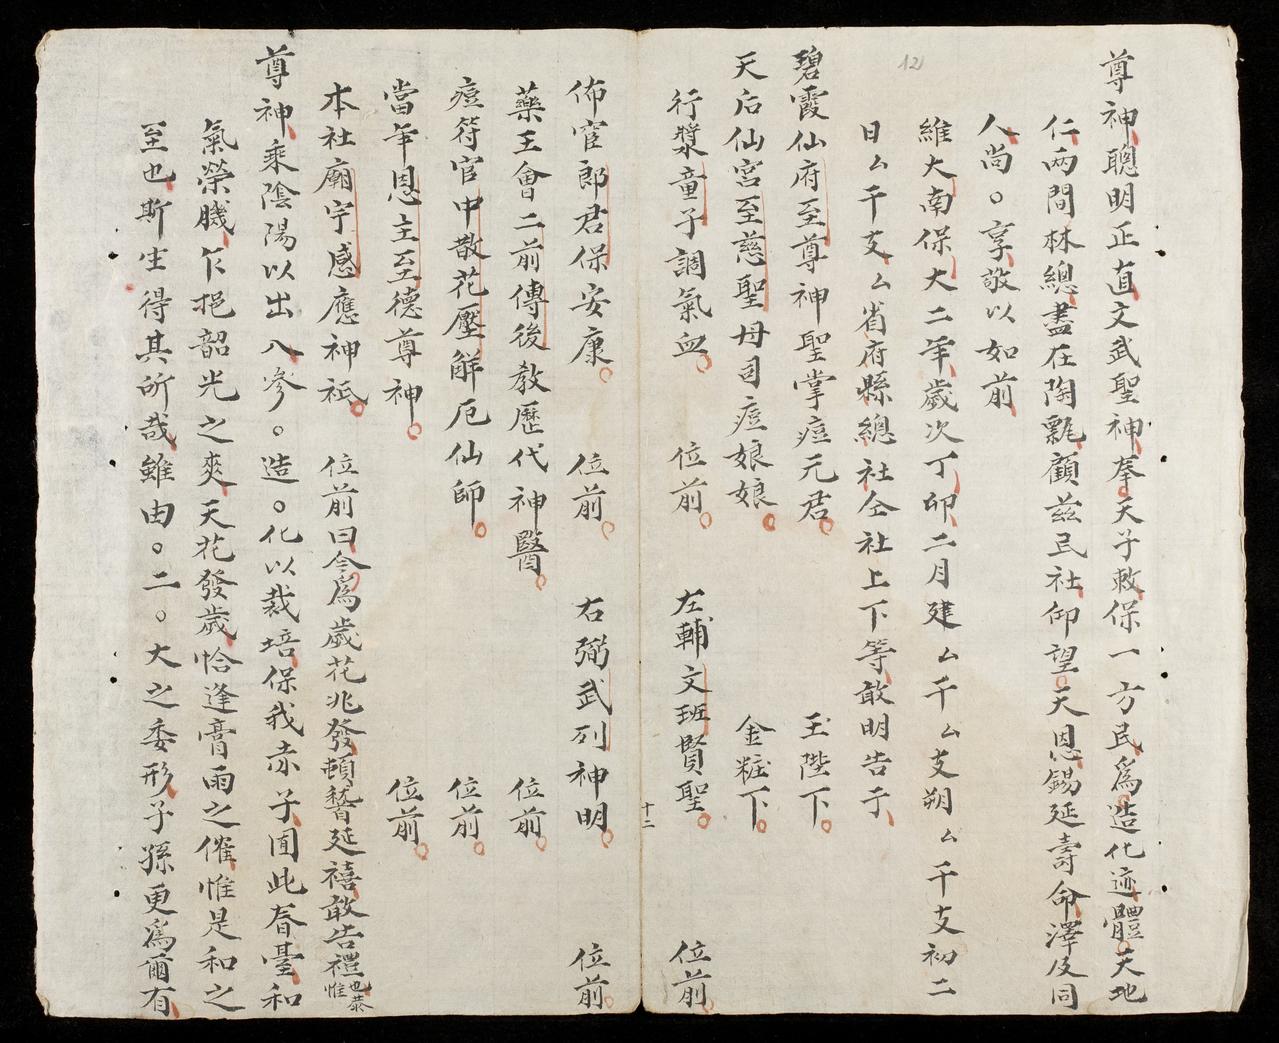 尊神聰明正直文武聖神奉天子敕保一方民爲造化迹體天地
仁兩間林總盡在陶甄顧茲民社仰望天恩錫延壽命澤及同
人尚○享敬以如前
維大南保大二年歲次丁卯二月建厶干厶支朔厶干支初二
日厶干支厶省府縣總社仝社上下等敢明告于
碧霞仙府至尊神聖掌痘元君 玉陛下
天后仙宮至慈聖母司痘娘娘 金粧下
行漿童子調氣血 位前 左輔文班賢聖 位前
十二
佈官郎君保安康 位前 右弼武列神明 位前
藥王會二前傳後教歷代神醫 位前
痘符官中散花壓解厄仙師 位前
當年恩主至德尊神 位前
本社廟宇感應神祇 位前曰今爲歲花兆發頓替延禧敢告禮也恭惟
尊神乘陰陽以出入參○造○化以栽培保我赤子囿此春臺和
氣榮機乍挹韶光之爽天花發歲恰逢膏雨之催惟是和之
至也斯生得其所哉雖由○二○大之委形子孫更爲爾有
12